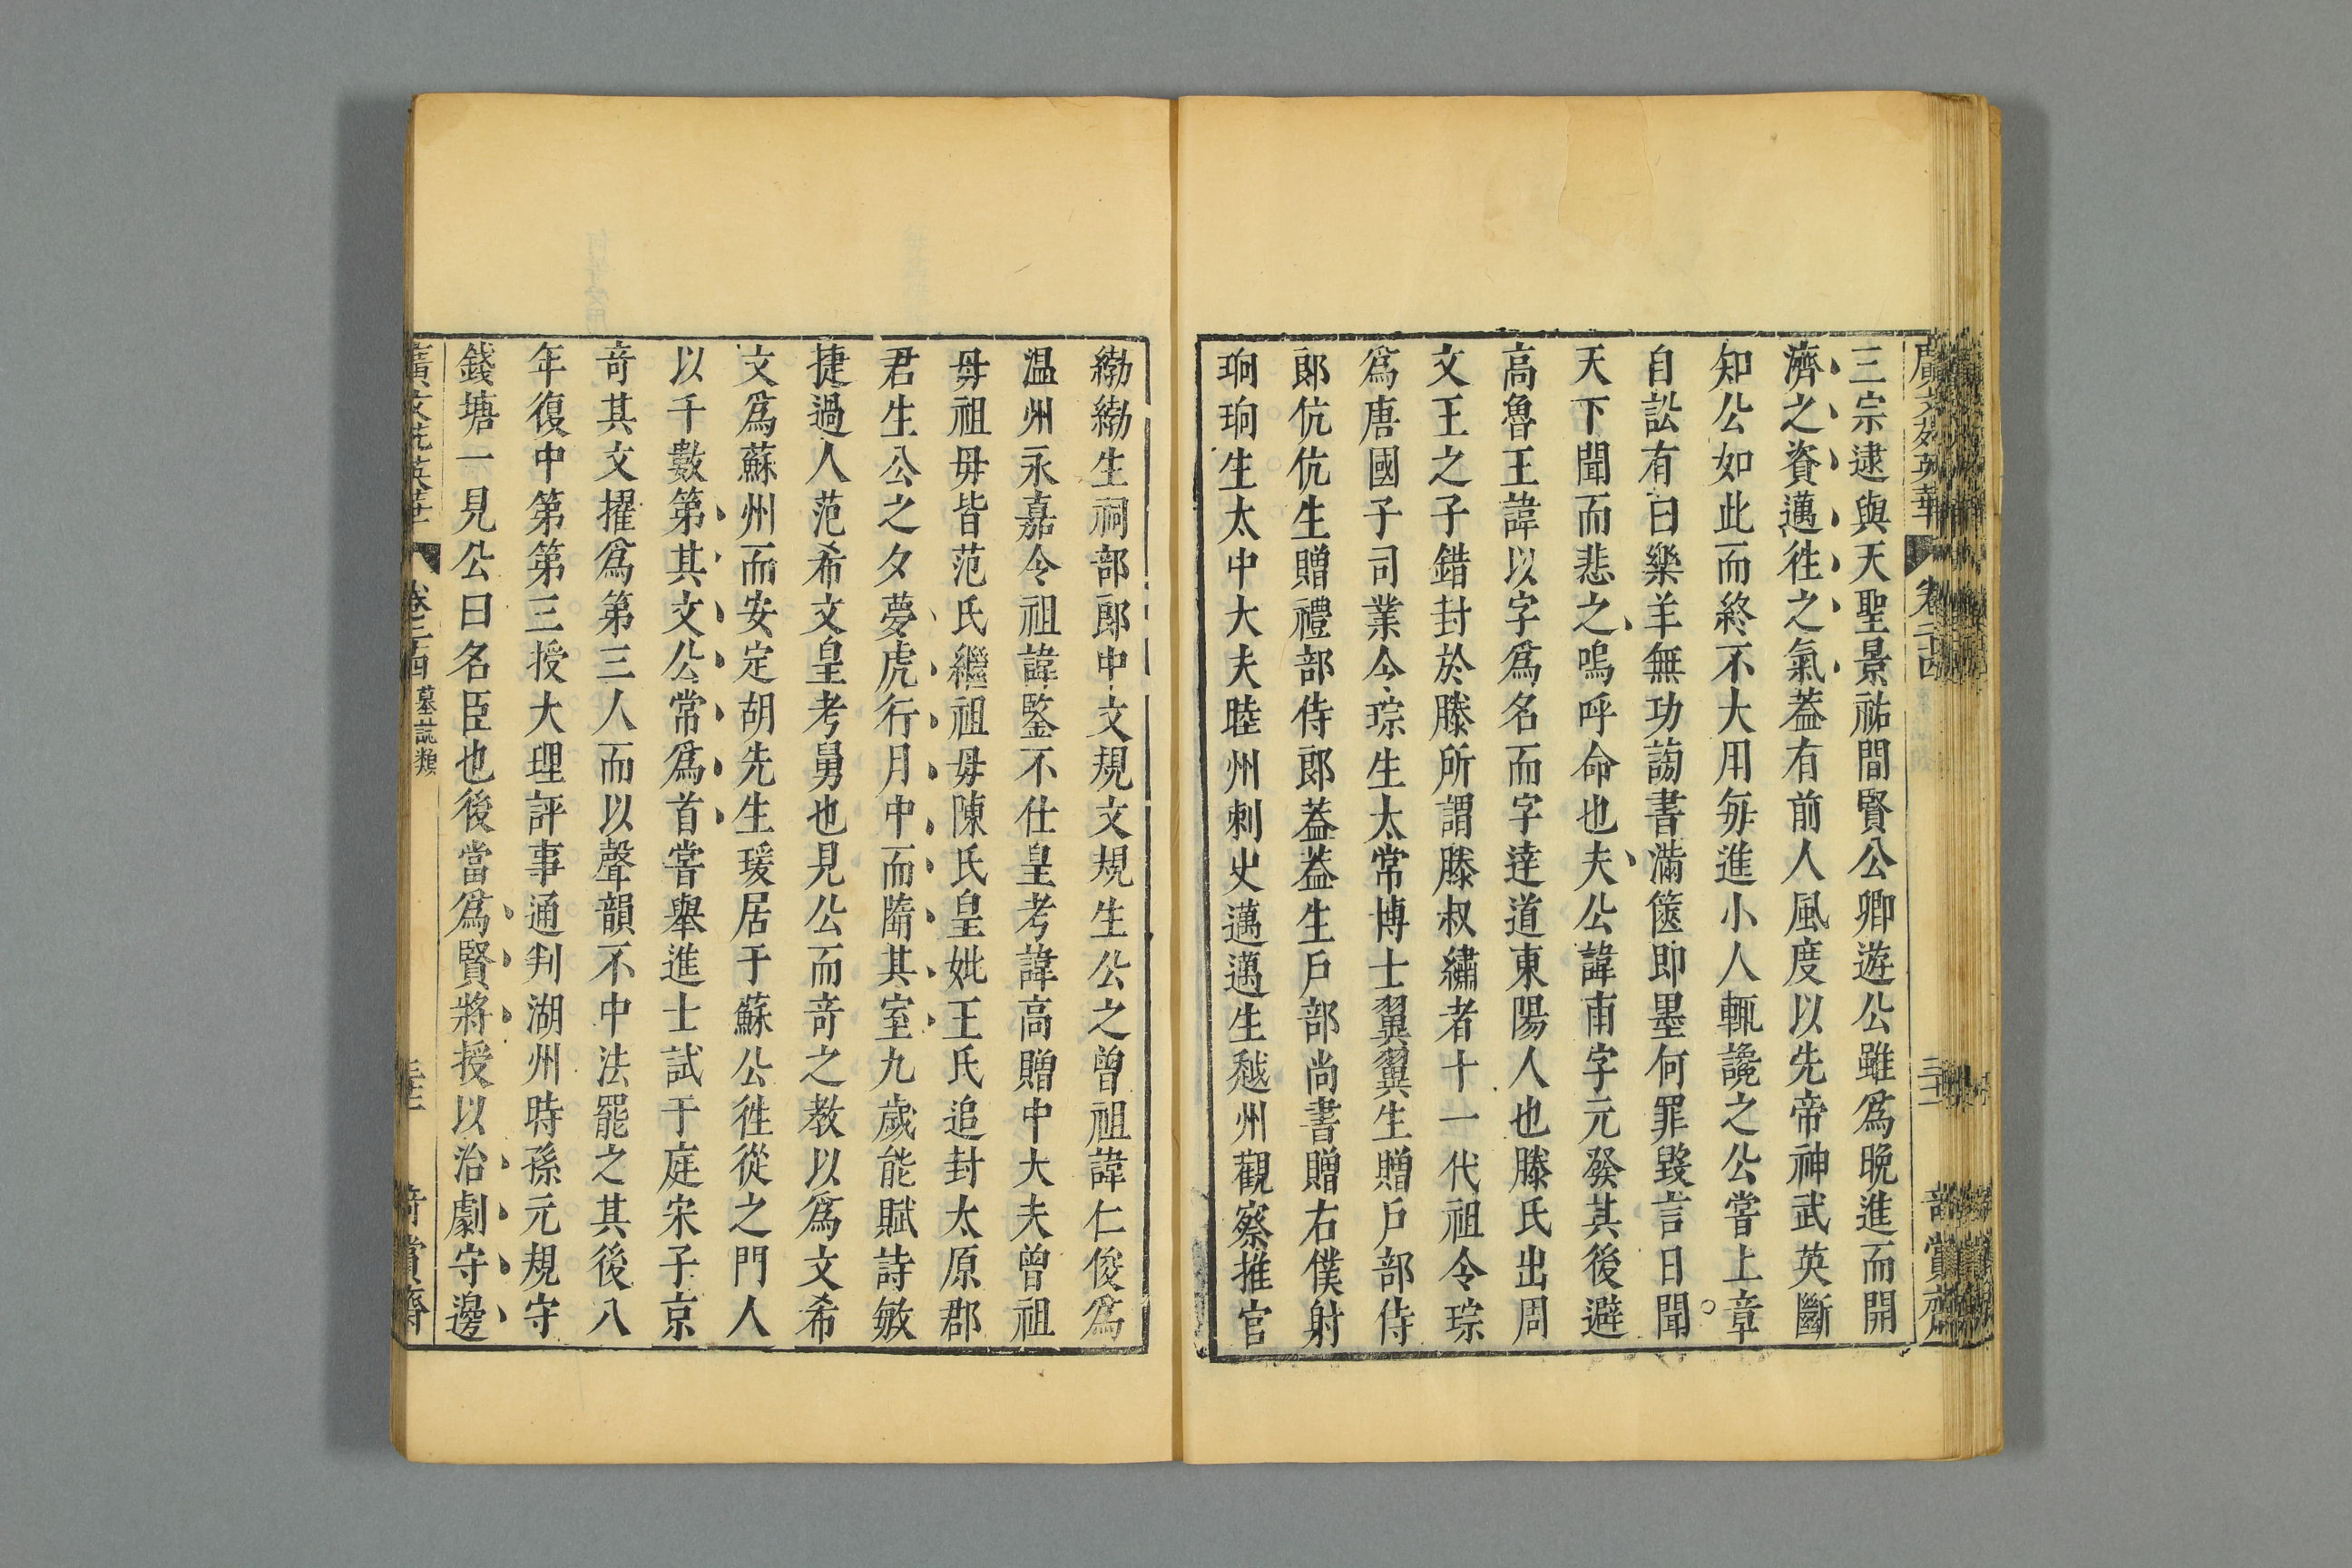 三宗逮與天聖景祐間賢公卿遊公雖爲晚進而開
濟之資邁徃之氣葢有前人風度以先帝神武英斷
知公如此而終不大用毎進小人輒讒之公嘗上章
自訟有曰樂羊無功謗書滿篋即墨何罪毀言日聞
天下聞而悲之嗚呼命也夫公諱甫字元發其後避
高魯王諱以字爲名而字逹道東陽人也滕氏出周
文王之子錯封於滕所謂滕叔繡者十一代祖令琮
爲唐國子司業今琮生太常博士翼翼生贈戸部侍
郎伉伉生贈禮部侍郎葢葢生戸部尚書贈右僕射
珦珦生太中大夫睦州刺史邁邁生越州觀察推官
緲緲生祠部郎中文規文規生公之曾祖諱仁俊爲
温州永嘉令祖諱鑒不仕皇考諱高贈中大夫曾祖
毋祖毋皆范氏繼祖毋陳氏皇妣王氏追封太原郡
君生公之夕夢虎行月中而隋其室九歲能賦詩敏
捷過人范希文皇考舅也見公而竒之教以爲文希
文爲蘇州而安定胡先生瑗居于蘇公徃從之門人
以千數第其文公常爲首嘗舉進士試于庭宋子京
竒其文擢爲第三人而以聲韻不中法罷之其後八
年復中第第三授大理評事通判湖州時孫元規守
錢塘一見公曰名臣也後當爲賢將授以治劇守邊
廣文苑英華 卷二十四 墓誌類